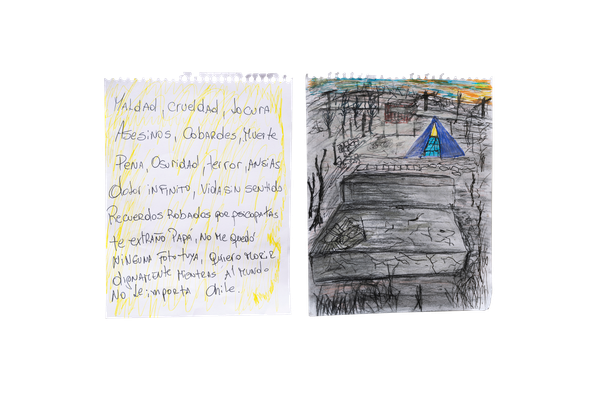 Maldad, crueldad, locura
Asesinos, Cobardes, Muerte
Pena, Oscuridad, terror, Ansias
Dolor infinito, Vida sin sentido
Recuerdos Robados por psicopatas
te extraño Papá, No Me quedó
Ninguna Foto tuya, quiero Morir
dignamente Mientras Al Mundo
No le importa Chile.